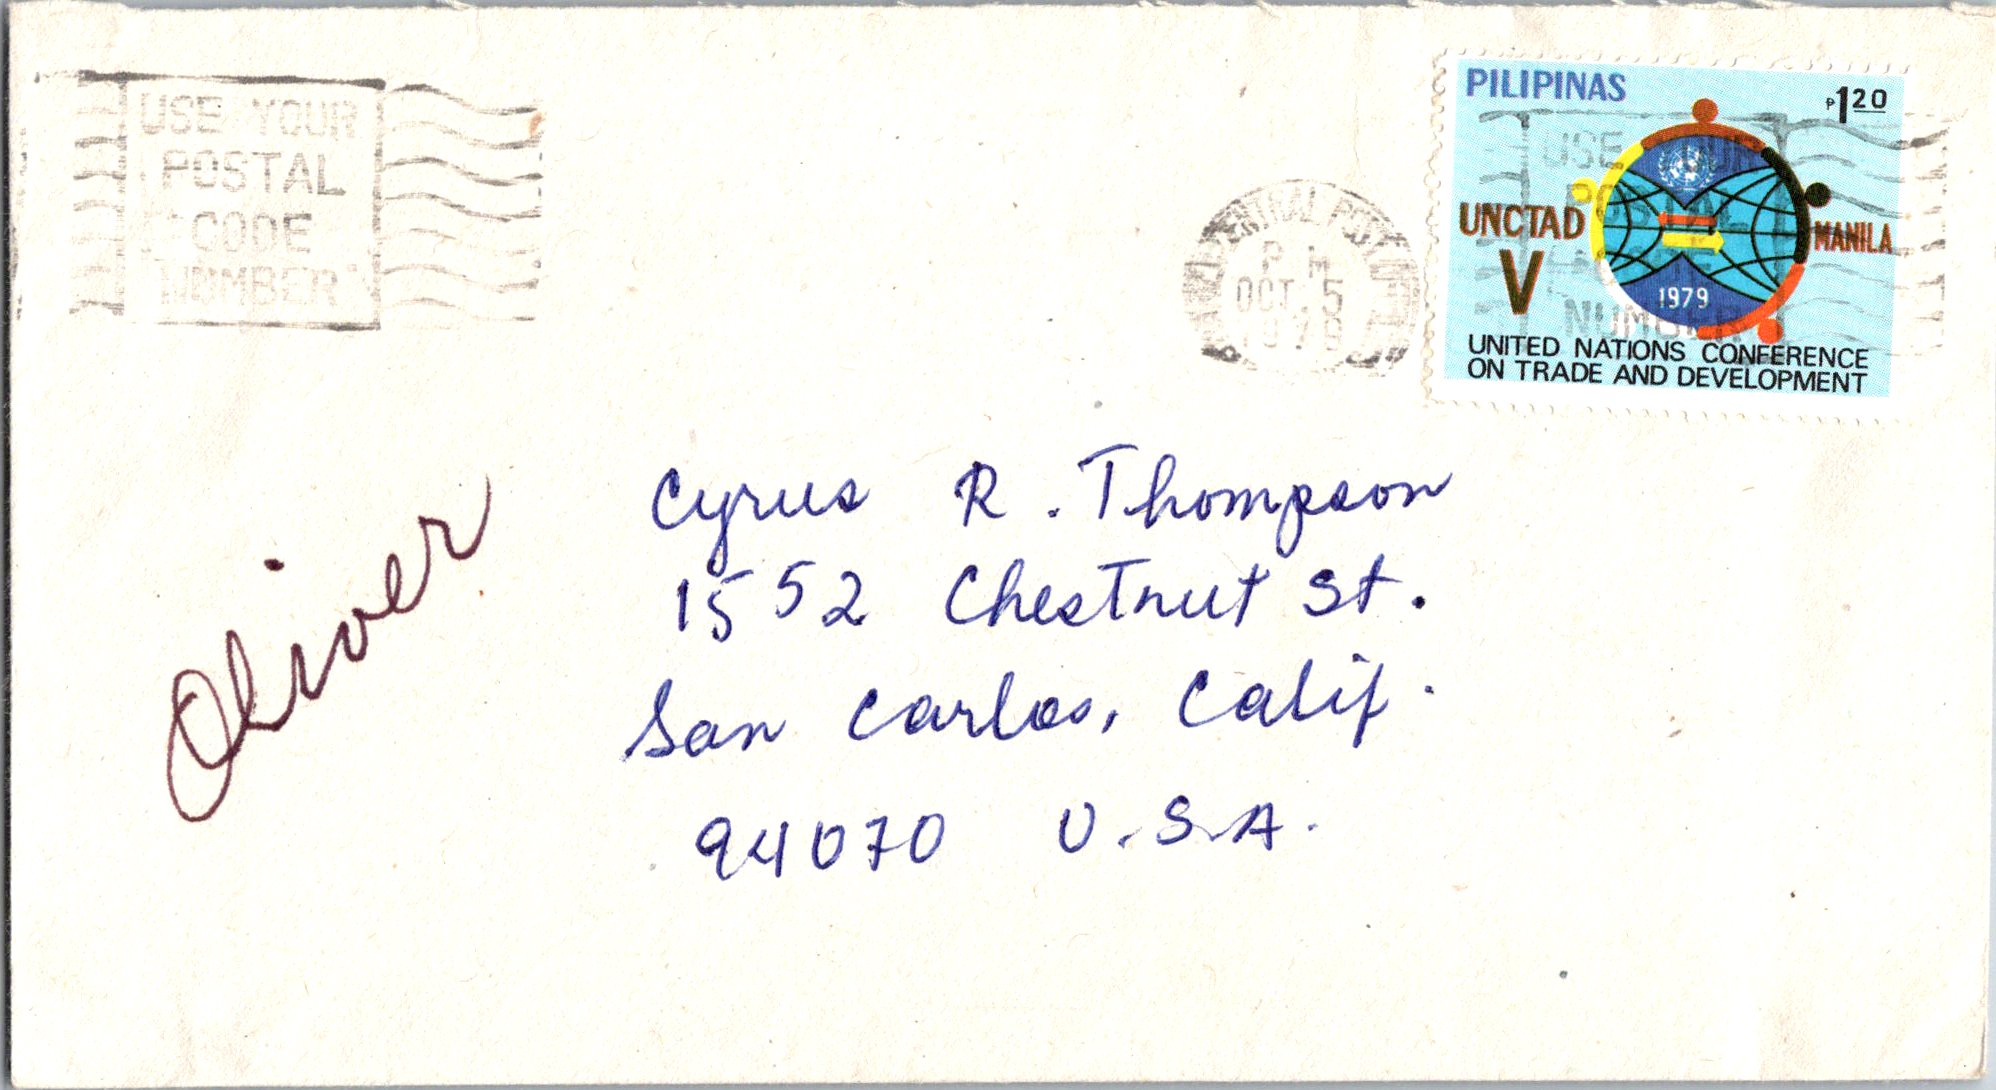 USE YOUR
POSTAL
CODE
NUMBER
CENTRAL POST
P M
OCT 5
1979
PILIPINAS
₱1 20
USE YOUR
POSTAL
CODE
NUMBER
UNCTAD
V
MANILA
1979
UNITED NATIONS CONFERENCE
ON TRADE AND DEVELOPMENT
Oliver
Cyrus R. Thompson
1552 Chestnut St.
San Carlos, Calif.
94070 U.S.A.